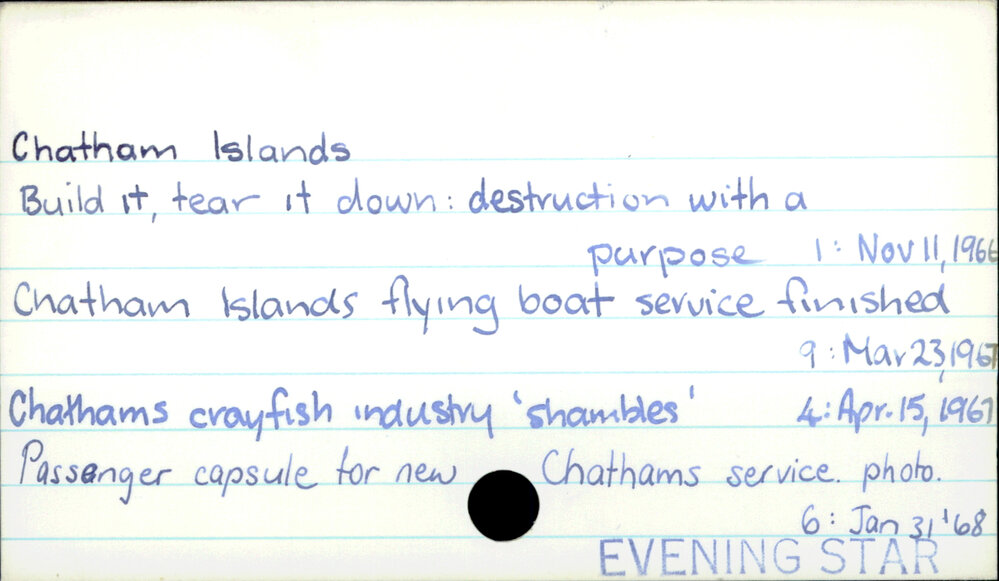 Chatham Islands
Build it, tear it down: destruction with a
purpose 1: Nov 11, 1966
Chatham Islands flying boat service finished
9: Mar 23, 1967
Chathams crayfish industry 'shambles' 4: Apr. 15, 1967
Passenger capsule for new Chathams service. photo.
6: Jan 31 '68
EVENING STAR